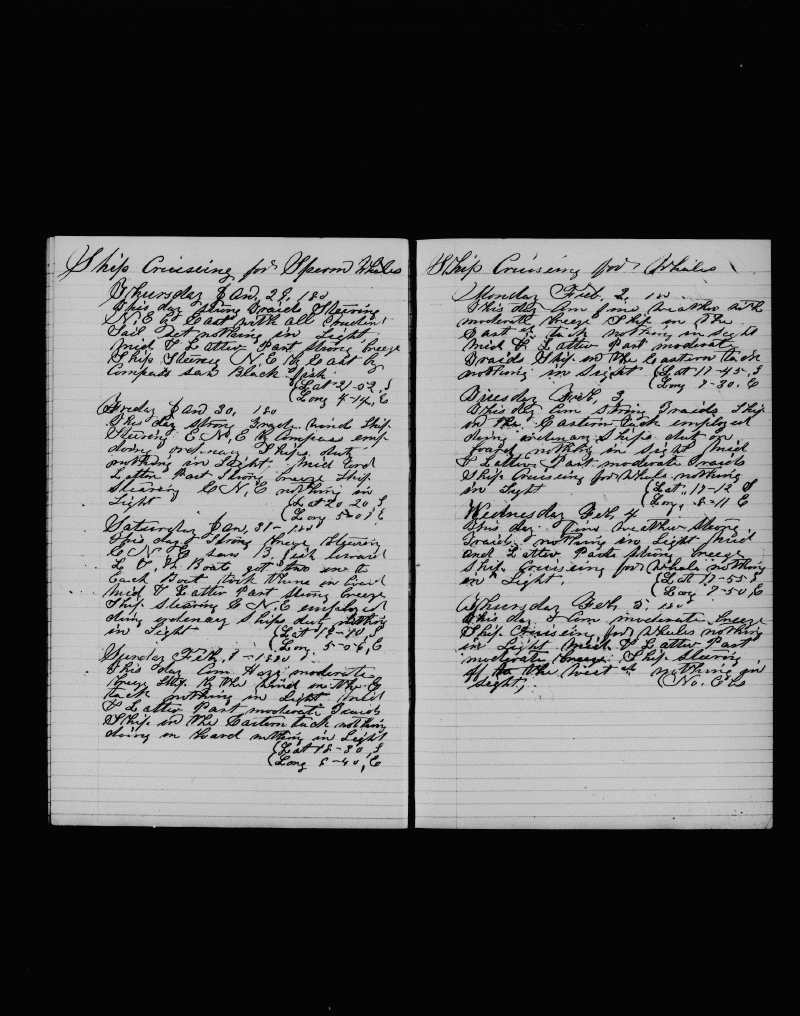 Ship Cruiseing for Sperm Whales
Thursday Jan, 29, 180
This day Strong Traids Steering
N, E by East with all Prudent
Sail Set nothing in Sight
Mid & Latter Part Strong breeze
Ship Steering N. E by East by
Compass saw Black fish
(Lat 21-02, S
(Long 4-14, E
Friday Jan 30, 180
This day strong Trade wind Ship
Steering E. N, E by Compass emp
doing ordenary Ships duty
nothing in Sight, mid and
Latter Part Strong breeze Ship
Stearing E, N, E nothing in
Sight (Lat 20-20, S
(Long 5-0, E
Saturday Jan, 31- 180
This day Strong breeze Steering
E N E saw B, fish lowerd
L & W Boats got two in to
Each Boat took them in
Mid & Latter Part Strong breeze
Ship stearing E N, E employed
doing ordenary Ships duty nothing
in Sight (Lat 19-10, S
(Long 5-06, E
Sunday Feb, 1- 1880
This day Com Hazy moderate
breeze Ship by the Wind on the E
tack nothing in Sight mid
& Latter Part moderate Traids
Ship on the Eastern tack nothing
doing on board nothing in Sight
(Lat 18-30, S
(Long 6-40, E
Ship Cruiseing for Whales
Monday Feb. 2, 180
This day Com fine weather with
moderate breeze Ship on the
East tack nothing in sight
Mid & Latter Part moderate
Traids Ship on the Eastern tack
nothing in Sight (Lat 17-45, S
(Long 7-30, E
Tuesday Feb, 3,
This day Com strong Traids Ship
on the Eastern tack employed
doing ordenary Ships duty on
board nothing in sight mid
& Latter Part moderate Traids
Ship Cruiseing for Whales nothing
in Sight (Lat, 17-12 S
(Long, 8-11 E
Wednesday Feb, 4
This day fine weather strong
Traids nothing in Sight Mid
and Latter Parts strong breeze
Ship Cruiseing for Whales nothing
in Sight, (Lat 17-55 S
(Long 7-50, E
Thursday Feb, 5, 180
This day Com moderate breeze
Ship Cruiseing for Whales nothing
in Sight Mid & Latter Part
moderate breeze Ship steering
off to the West nothing in
sight, (No. Obs